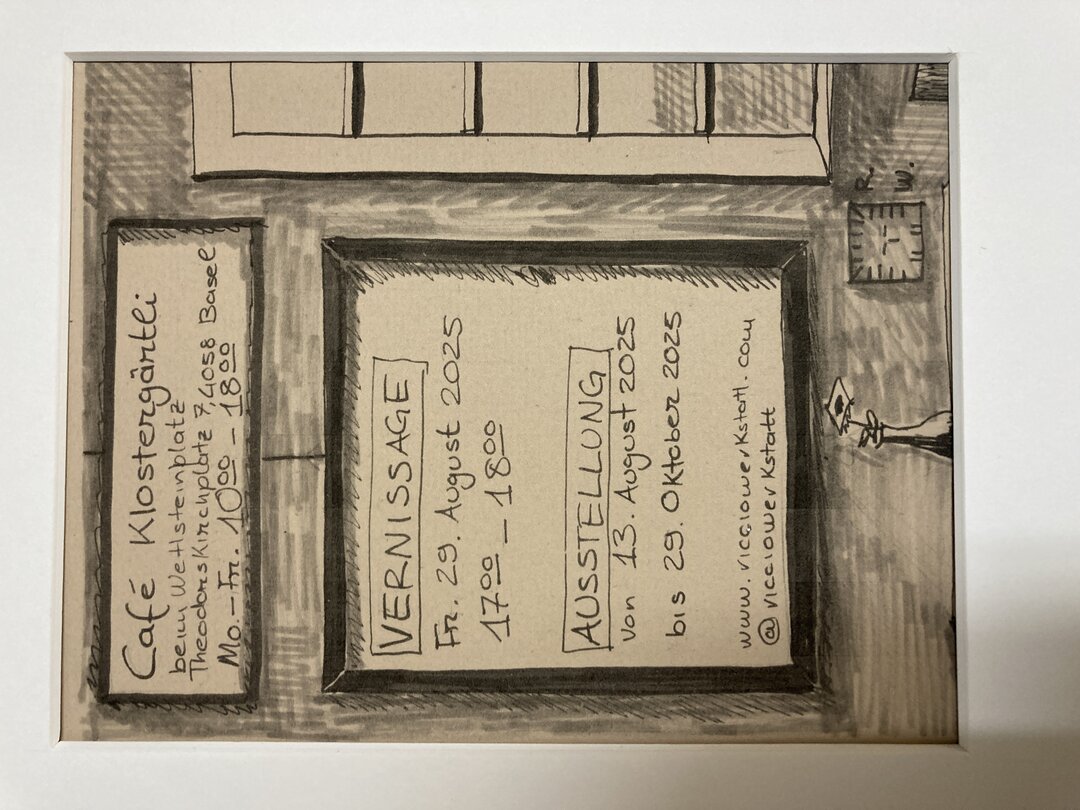 Café Klostergärtli
beim Wettsteinplatz
Theodorskirchplatz 7, 4058 Basel
Mo.-Fr. 10 00 - 18 00
VERNISSAGE
Fr. 29. August 2025
17 00 - 18 00
AUSSTELLUNG
von 13. August 2025
bis 29. Oktober 2025
www.ricciowerkstatt.com
@ricciowerkstatt
R.
W.